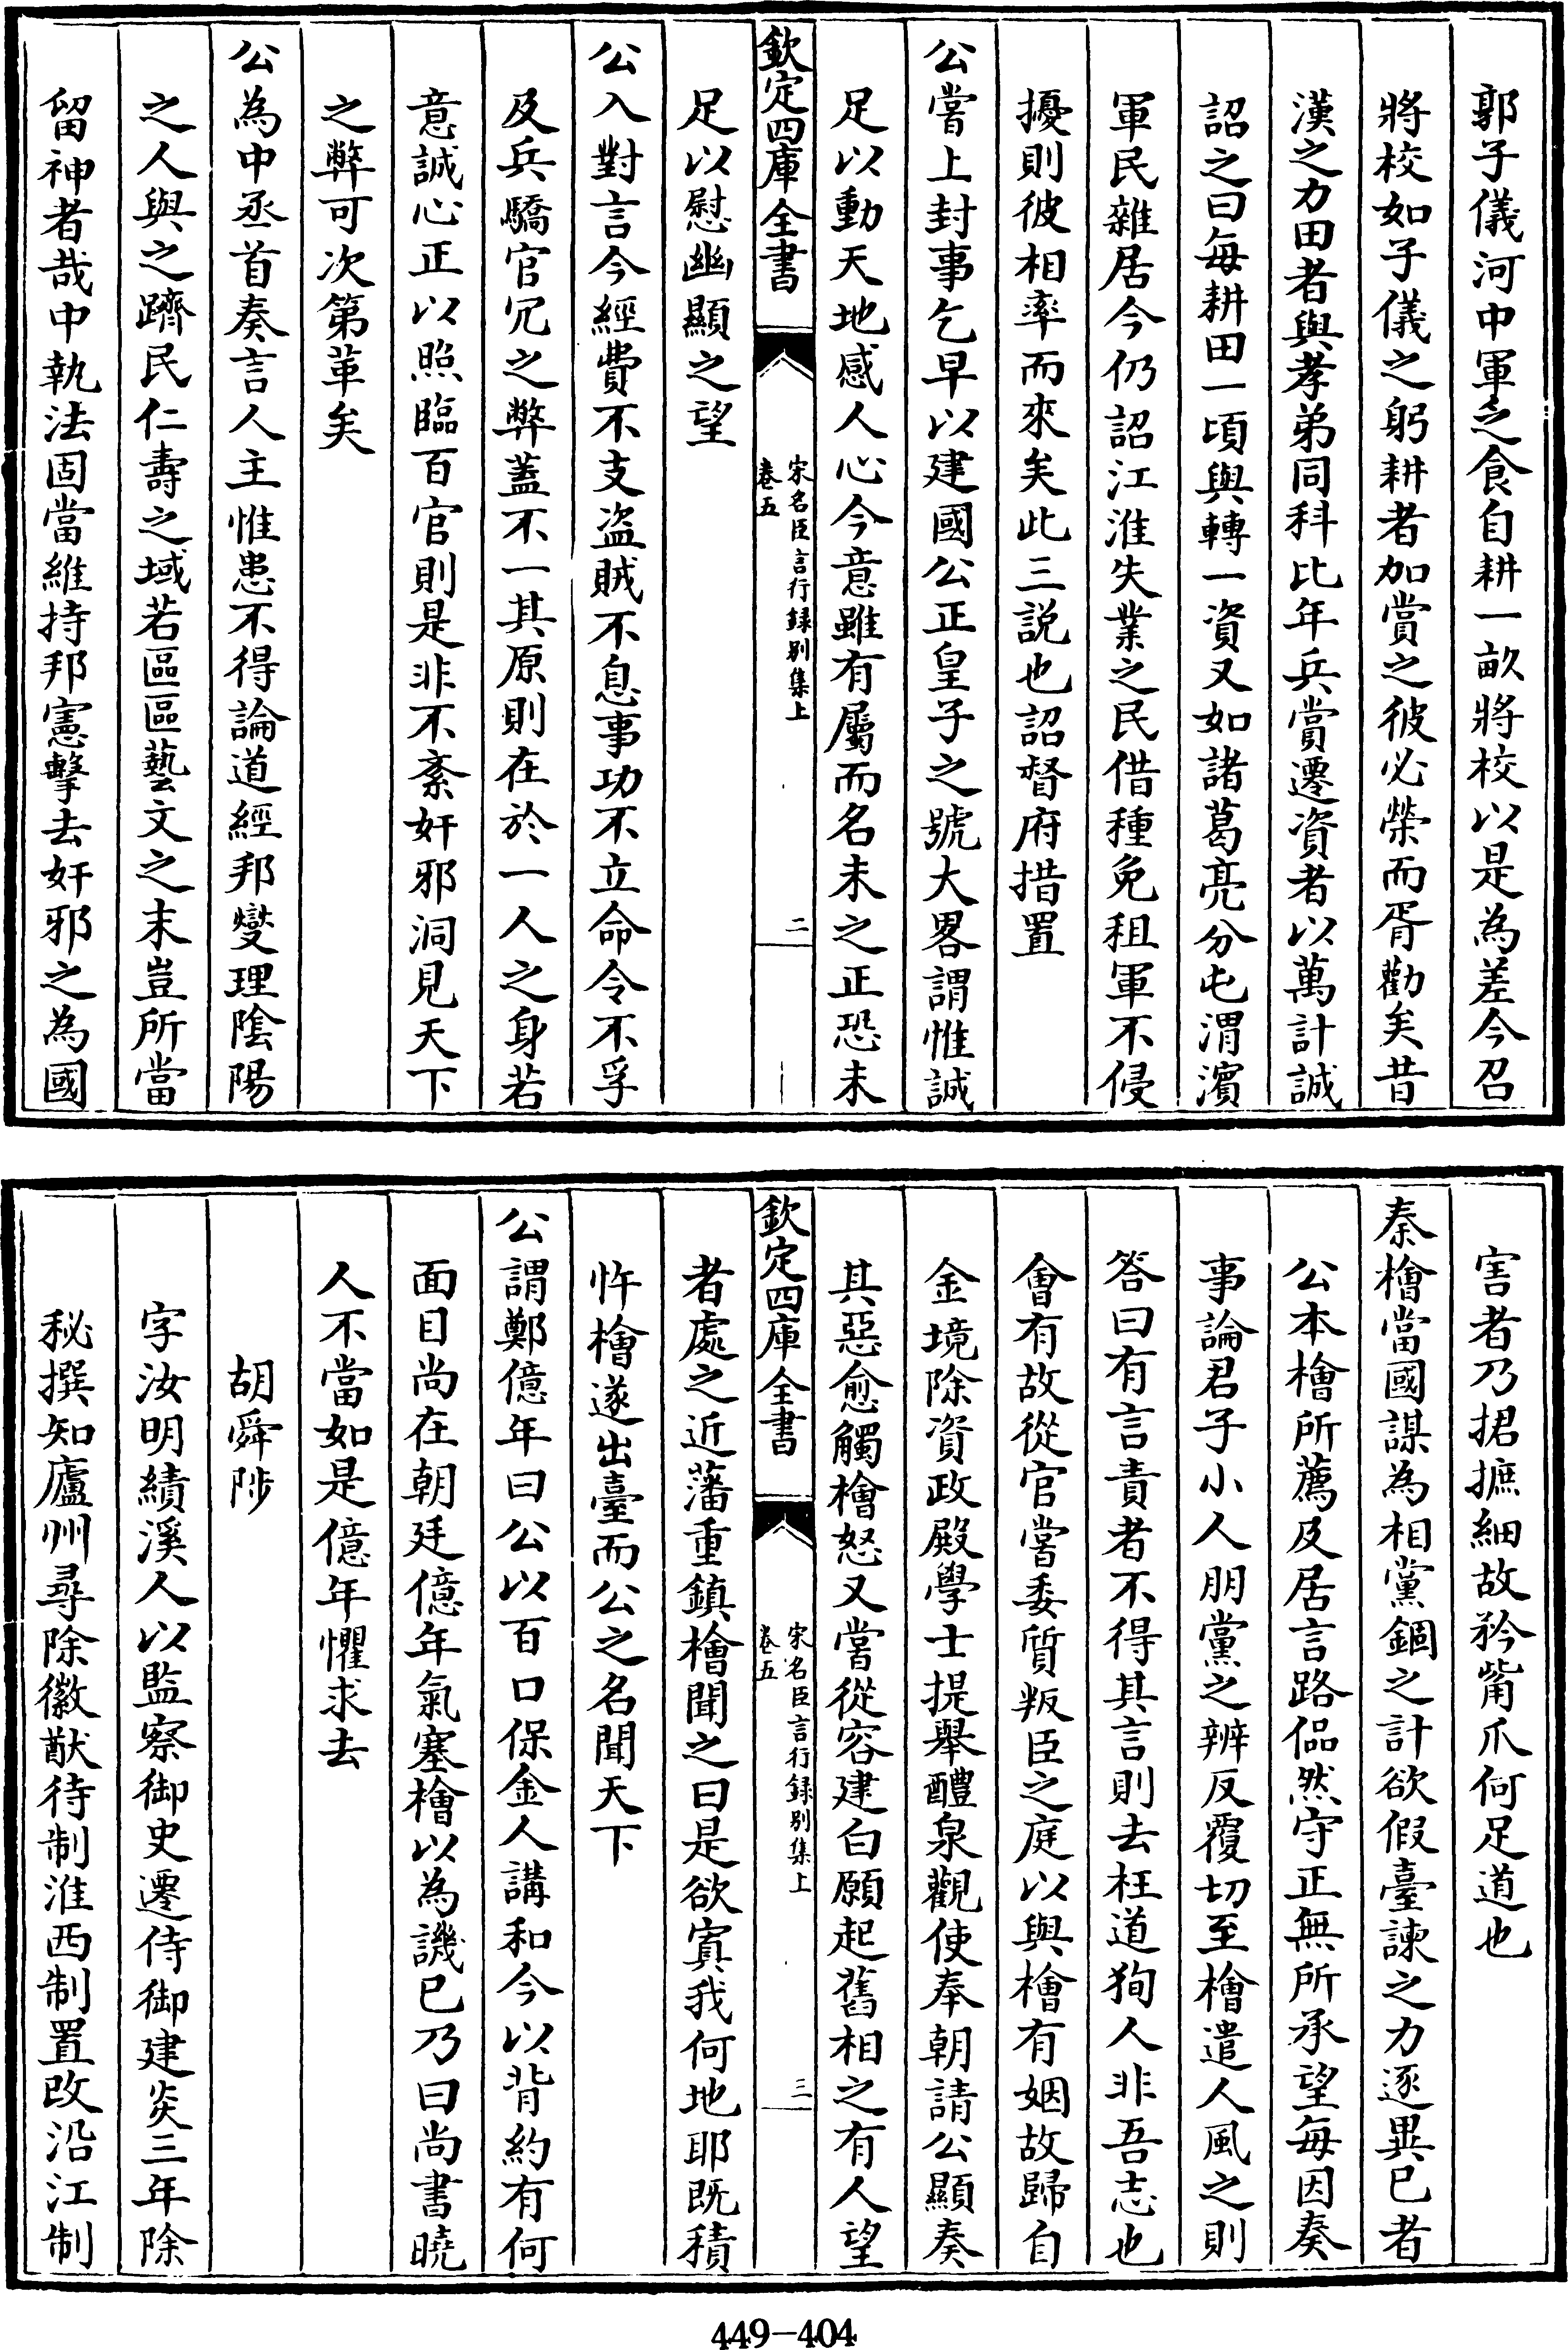 郭子儀河中軍乏食自耕一畝將校以是為差今召
將校如子儀之躬耕者加賞之彼必榮而胥勸矣昔
漢之力田者與孝弟同科比年兵賞遷資者以萬計誠
詔之曰每耕田一頃與轉一資又如諸葛亮分屯渭濱
軍民雜居今仍詔江淮失業之民借種免租軍不侵
擾則彼相率而來矣此三説也詔督府措置
公嘗上封事乞早以建國公正皇子之號大畧謂惟誠
足以動天地感人心今意雖有屬而名未之正恐未
欽定四庫全書
宋名臣言行録别集上
卷五
二
足以慰幽顯之望
公入對言今經費不支盜賊不息事功不立命令不孚
及兵驕官冗之弊蓋不一其原則在於一人之身若
意誠心正以照臨百官則是非不紊奸邪洞見天下
之弊可次第革矣
公為中丞首奏言人主惟患不得論道經邦燮理陰陽
之人與之躋民仁壽之域若區區藝文之末豈所當
留神者哉中執法固當維持邦憲擊去奸邪之為國
害者乃捃摭細故矜觜爪何足道也
秦檜當國謀為相黨錮之計欲假臺諫之力逐異已者
公本檜所薦及居言路偘然守正無所承望每因奏
事論君子小人朋黨之辨反覆切至檜遣人風之則
答曰有言責者不得其言則去枉道狥人非吾志也
會有故從官嘗委質叛臣之庭以與檜有姻故歸自
金境除資政殿學士提舉醴泉觀使奉朝請公顯奏
其惡愈觸檜怒又嘗從容建白願起舊相之有人望
欽定四庫全書
宋名臣言行録别集上
卷五
三
者處之近藩重鎮檜聞之曰是欲寘我何地耶既積
忤檜遂出臺而公之名聞天下
公謂鄭億年曰公以百口保金人講和今以背約有何
面目尚在朝廷億年氣塞檜以為譏已乃曰尚書曉
人不當如是億年懼求去
胡舜陟
字汝明績溪人以監察御史遷侍御建炎三年除
秘撰知廬州尋除徽猷待制淮西制置改沿江制
449-404